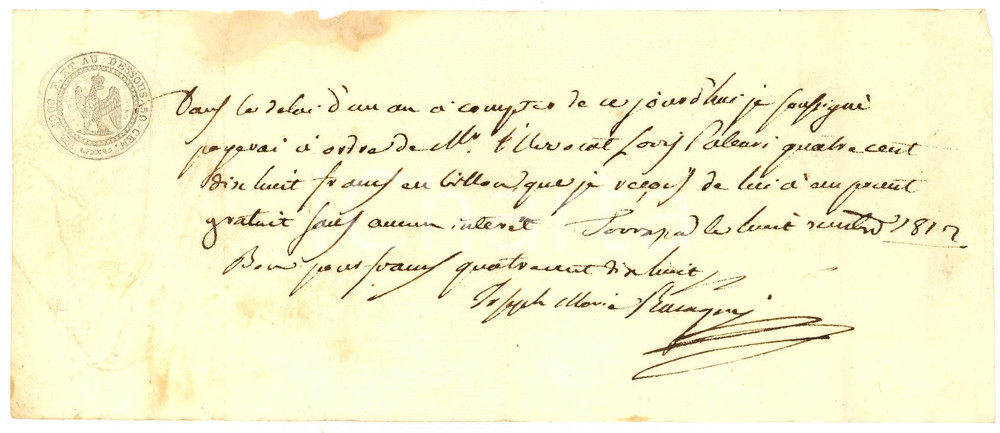 000 F. ET AU DESSOUS. 50 CEN.
Dans le delai d'un an à compter de ce jourd'hui je sousigné
payerai à ordre de Mr. l'Avocat Louis quatrecent
dix huit francs en billon, que je reçois de lui à
gratuit sans aucun interet le huit 1812
Bon pour francs quatrecent dix huit
Joseph Marie